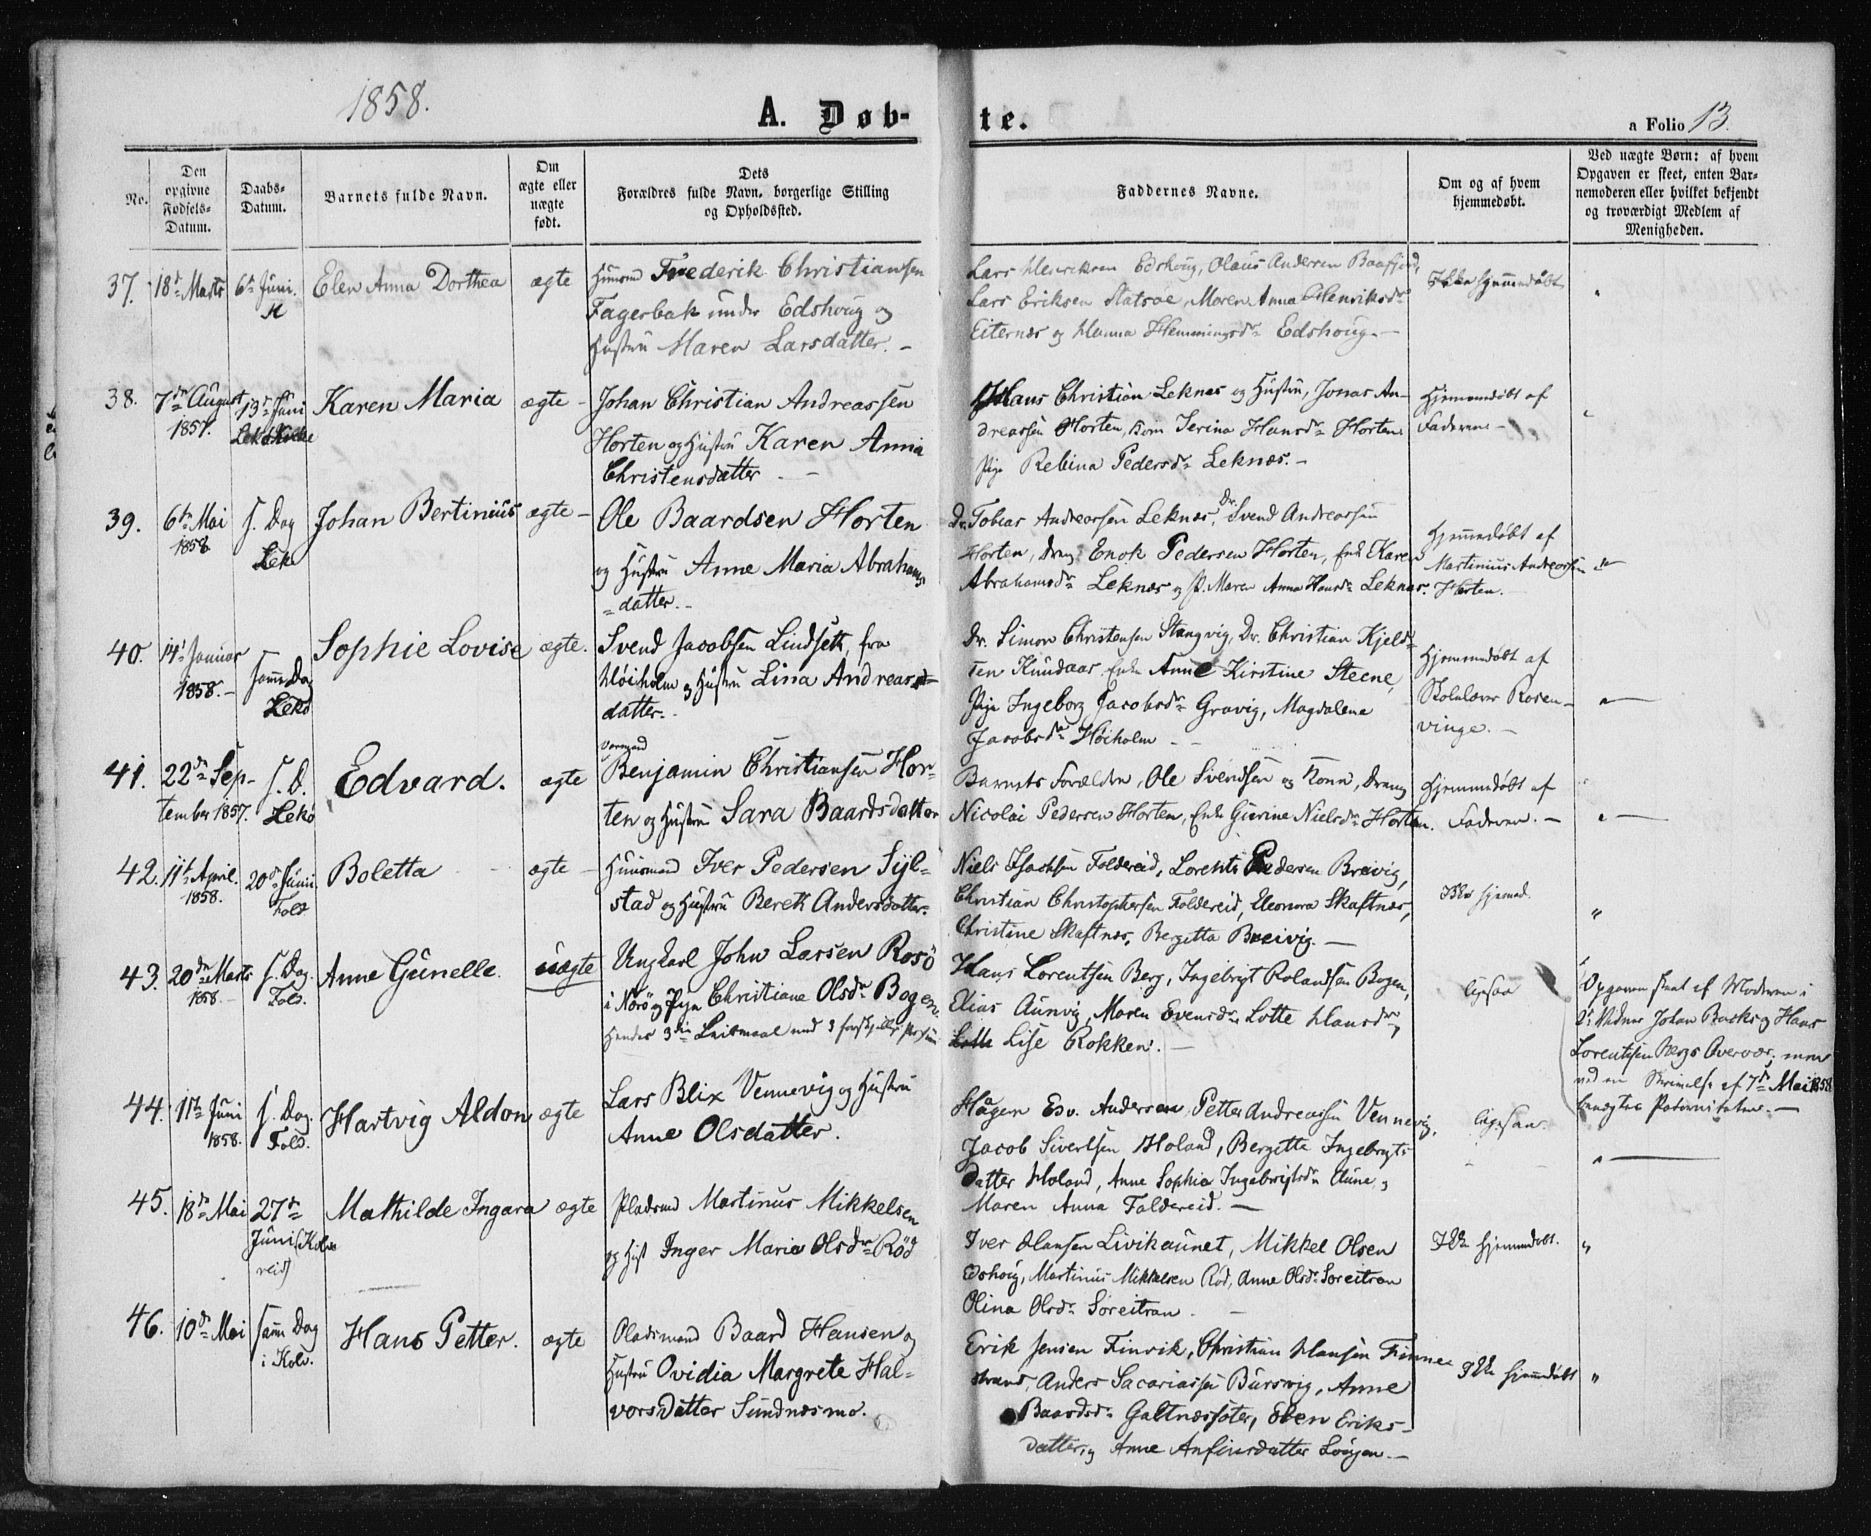 1858.
A. Døb-
te.
a Folio 13.
No.
Den
opgivne
Fødsels-
Datum.
Daabs-
Datum.
Barnets fulde Navn.
Om
ægte eller
uægte
født.
Dets
Forældres fulde Navn, borgerlige Stilling
og Opholdssted.
Faddernes Navne.
Om og af hvem
hjemmedøbt.
Ved uægte Børn: af hvem
Opgaven er skeet, enten Bar-
nemoderen eller hvilket bekjendt
og troværdigt Medlem af
Menigheden.
37. 18de Marts 6te Juni. Elen Anna Dorthea ægte Huusmd Frederik Christiansen
Fagerbak under Edshoug og
Hustru Maren Larsdatter. –
Lars Henriksen Edshoug, Olaus Andersen Baafjord,
Lars Eriksen Statsøe, Maren Anna Henriksdr
Eiternæs og Hanna Hemmingsdr Edshoug. –
Ikke hjemmedøbt
38. 7de August 13de Juni Karen Maria ægte – Johan Christian Andreassen
1857. Lekø Kirke
Horten og Hustru Karen Anna
Christensdatter –
Hans Christian Leknæs og Hustru, Jonas An-
dreassen Horten, Serina Hansdr Horten
Pige Rebina Pedersdr Leknæs. –
Hjemmedøbt af
Faderen –
39. 6te Mai s. Dag Johan Bertinius ægte – Ole Baardsen Horten
1858 Lekø
og Hustru Anne Maria Abrahams-
datter. –
Dr. Tobias Andreassen Leknæs, Dr. Svend Andreassen
Horten, Dreng Enok Pedersen Horten, Enke Karen
Abrahamsdr Leknæs og P. Maren Anna Hansdr Leknæs.
Hjemmedøbt af
Martinius Andreassen
Horten. –
40. 14de Januar Samme Dag Sophie Lovise ægte. Svend Jacobsen Lindseth, fra
1858. – Lekø
Høiholm og Hustru Lina Andreas-
datter. –
Dr. Simon Christensen Stangvig, Dr. Christian Kjeld-
sen Knudaas, Enke Anne Kirstine Steene,
Pige Ingeborg Jacobsdr Gravig, Magdalena
Jacobsdr Høiholm –
Hjemmedøbt af
Skolelærer Rosen-
vinge. –
41. 22de Sep- s. D. Edvard. ægte Benjamin Christiansen Hor-
tember 1857. Lekø
ten og Hustru Sara Baardsdatter
Barnets Forældre, Ole Svendsen og Kone, Dreng
Nicolai Pedersen Horten, Enke Gurine Nielsdr Horten.
Hjemmedøbt af
Faderen. –
42. 11te April. 20de Juni Boletta – ægte – Huusmand Iver Pedersen Sjel-
1858. Fold.
stad og Hustru Beret Andersdatter.
Niels Isachsen Foldereid, Lorents Pedersen Breivig,
Christian Christophersen Foldereid, Eleonora Skaftnæs,
Christine Skaftnæs, Bergitta Breivig. –
Ikke hjemmed.
43. 20de Marts s. Dag. Anne Gunelle. uægte Ungkarl John Larsen Rosø
1858. – Fold.
i Nærø og Pige Christiane Olsdr Bogen,
Hendes 3die Leiermaal med 3 forskjellige Personer
Hans Lorentsen Berg, Ingebrigt Rolandsen Bogen,
Elias Aunvig, Maren Evensdr, Lotte Hansdr,
Lise Kokken. –
ligesaa
Opgaven skeet af Moderen i
2de Vidner Johan Barks og Hans
Lorentsen Bergs Overvær, men
ved en Skrivelse af 7de Mai 1858
benægtes Paterniteten. –
44. 11te Juni s. Dag. Hartvig Aldon ægte Lars Blix Vennevig og Hustru
1858. Fold.
Anne Olsdatter.
Hågen Esv. Andersen, Petter Andreassen Vennevig,
Jacob Sivertsen Holand, Bergitte Ingebrigts-
datter Holand, Anne Sophia Ingebrigtsdr Aune, og
Maren Anna Foldereid. –
ligesaa.
45. 18de Mai 27de Mathilde Ingara ægte Pladsmd Martinus Mikkelsen
Juni (Kolve
reid)
og Hust Inger Maria Olsdr Rød
Iver Hansen Livikaunet, Mikkel Olsen
Edshoug, Martinus Mikkelsen Rød, Anne Olsdr Søreitran
Olina Olsdr Søreitran. –
Ikke Hjemmedøbt.
46. 10de Mai samme Dag Hans Petter. ægte Pladsmand Baard Hansen og
i Kolv.
Hustru Ovidia Margrete Hal-
vorsdatter Sundnæsmo.
Erik Jensen Finvik, Christian Hansen Finne-
strand, Anders Sacariassen Bursvig, Anne
Baardsdr Galtnæssæter, Elen Eriks-
datter, og Anne Anfinsdatter Løvgen. –
Ikke hjemmedøbt